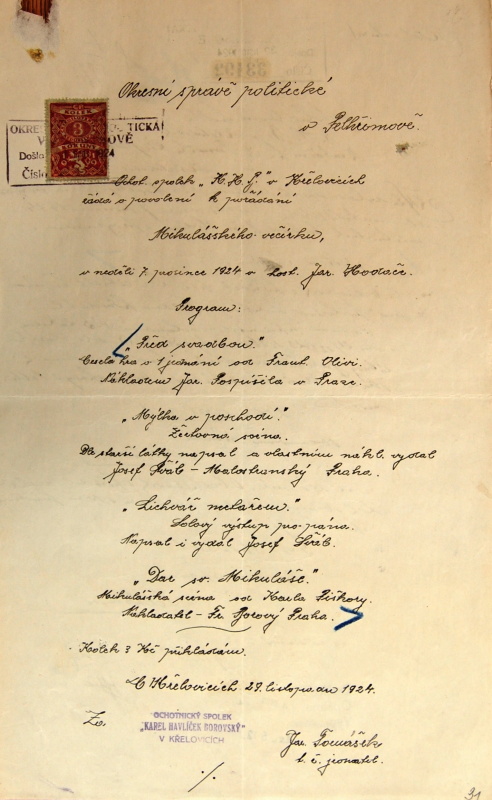 Okresní správě politické
v Pelhřimově.
OKRE TICKÁ
V OVĚ
Došlo 24
Číslo
KOLEK
3
KORUNY
Ochot. spolek „K. H. B." v Křelovicích
žádá o povolení k pořádání
Mikulášského večírku,
v neděli 7. prosince 1924 v host. Jar. Hodače.
Program:
„Před svadbou."
Veselá hra o 1 jednání od Frant. Olivi.
Nákladem Jar. Pospíšila v Praze.
„Mýlka v poschodí."
Žertovná scéna.
Dle starší látky napsal a vlastním nákl. vydal
Josef Šváb - Malostranský Praha.
„Lichvář metařem."
Solový výstup pro pána.
Napsal i vydal Josef
„Dar sv. Mikuláše."
Mikulášská scéna od Karla Piškory.
Nakladatel - Fr. Borový Praha.
Kolek 3 Kč přikládám.
V Křelovicích 29. listopadu 1924.
Za
OCHOTNICKÝ SPOLEK
„KAREL HAVLÍČEK BOROVSKÝ"
V KŘELOVICÍCH
Jar. Tomášek
t. č. jednatel.
./.